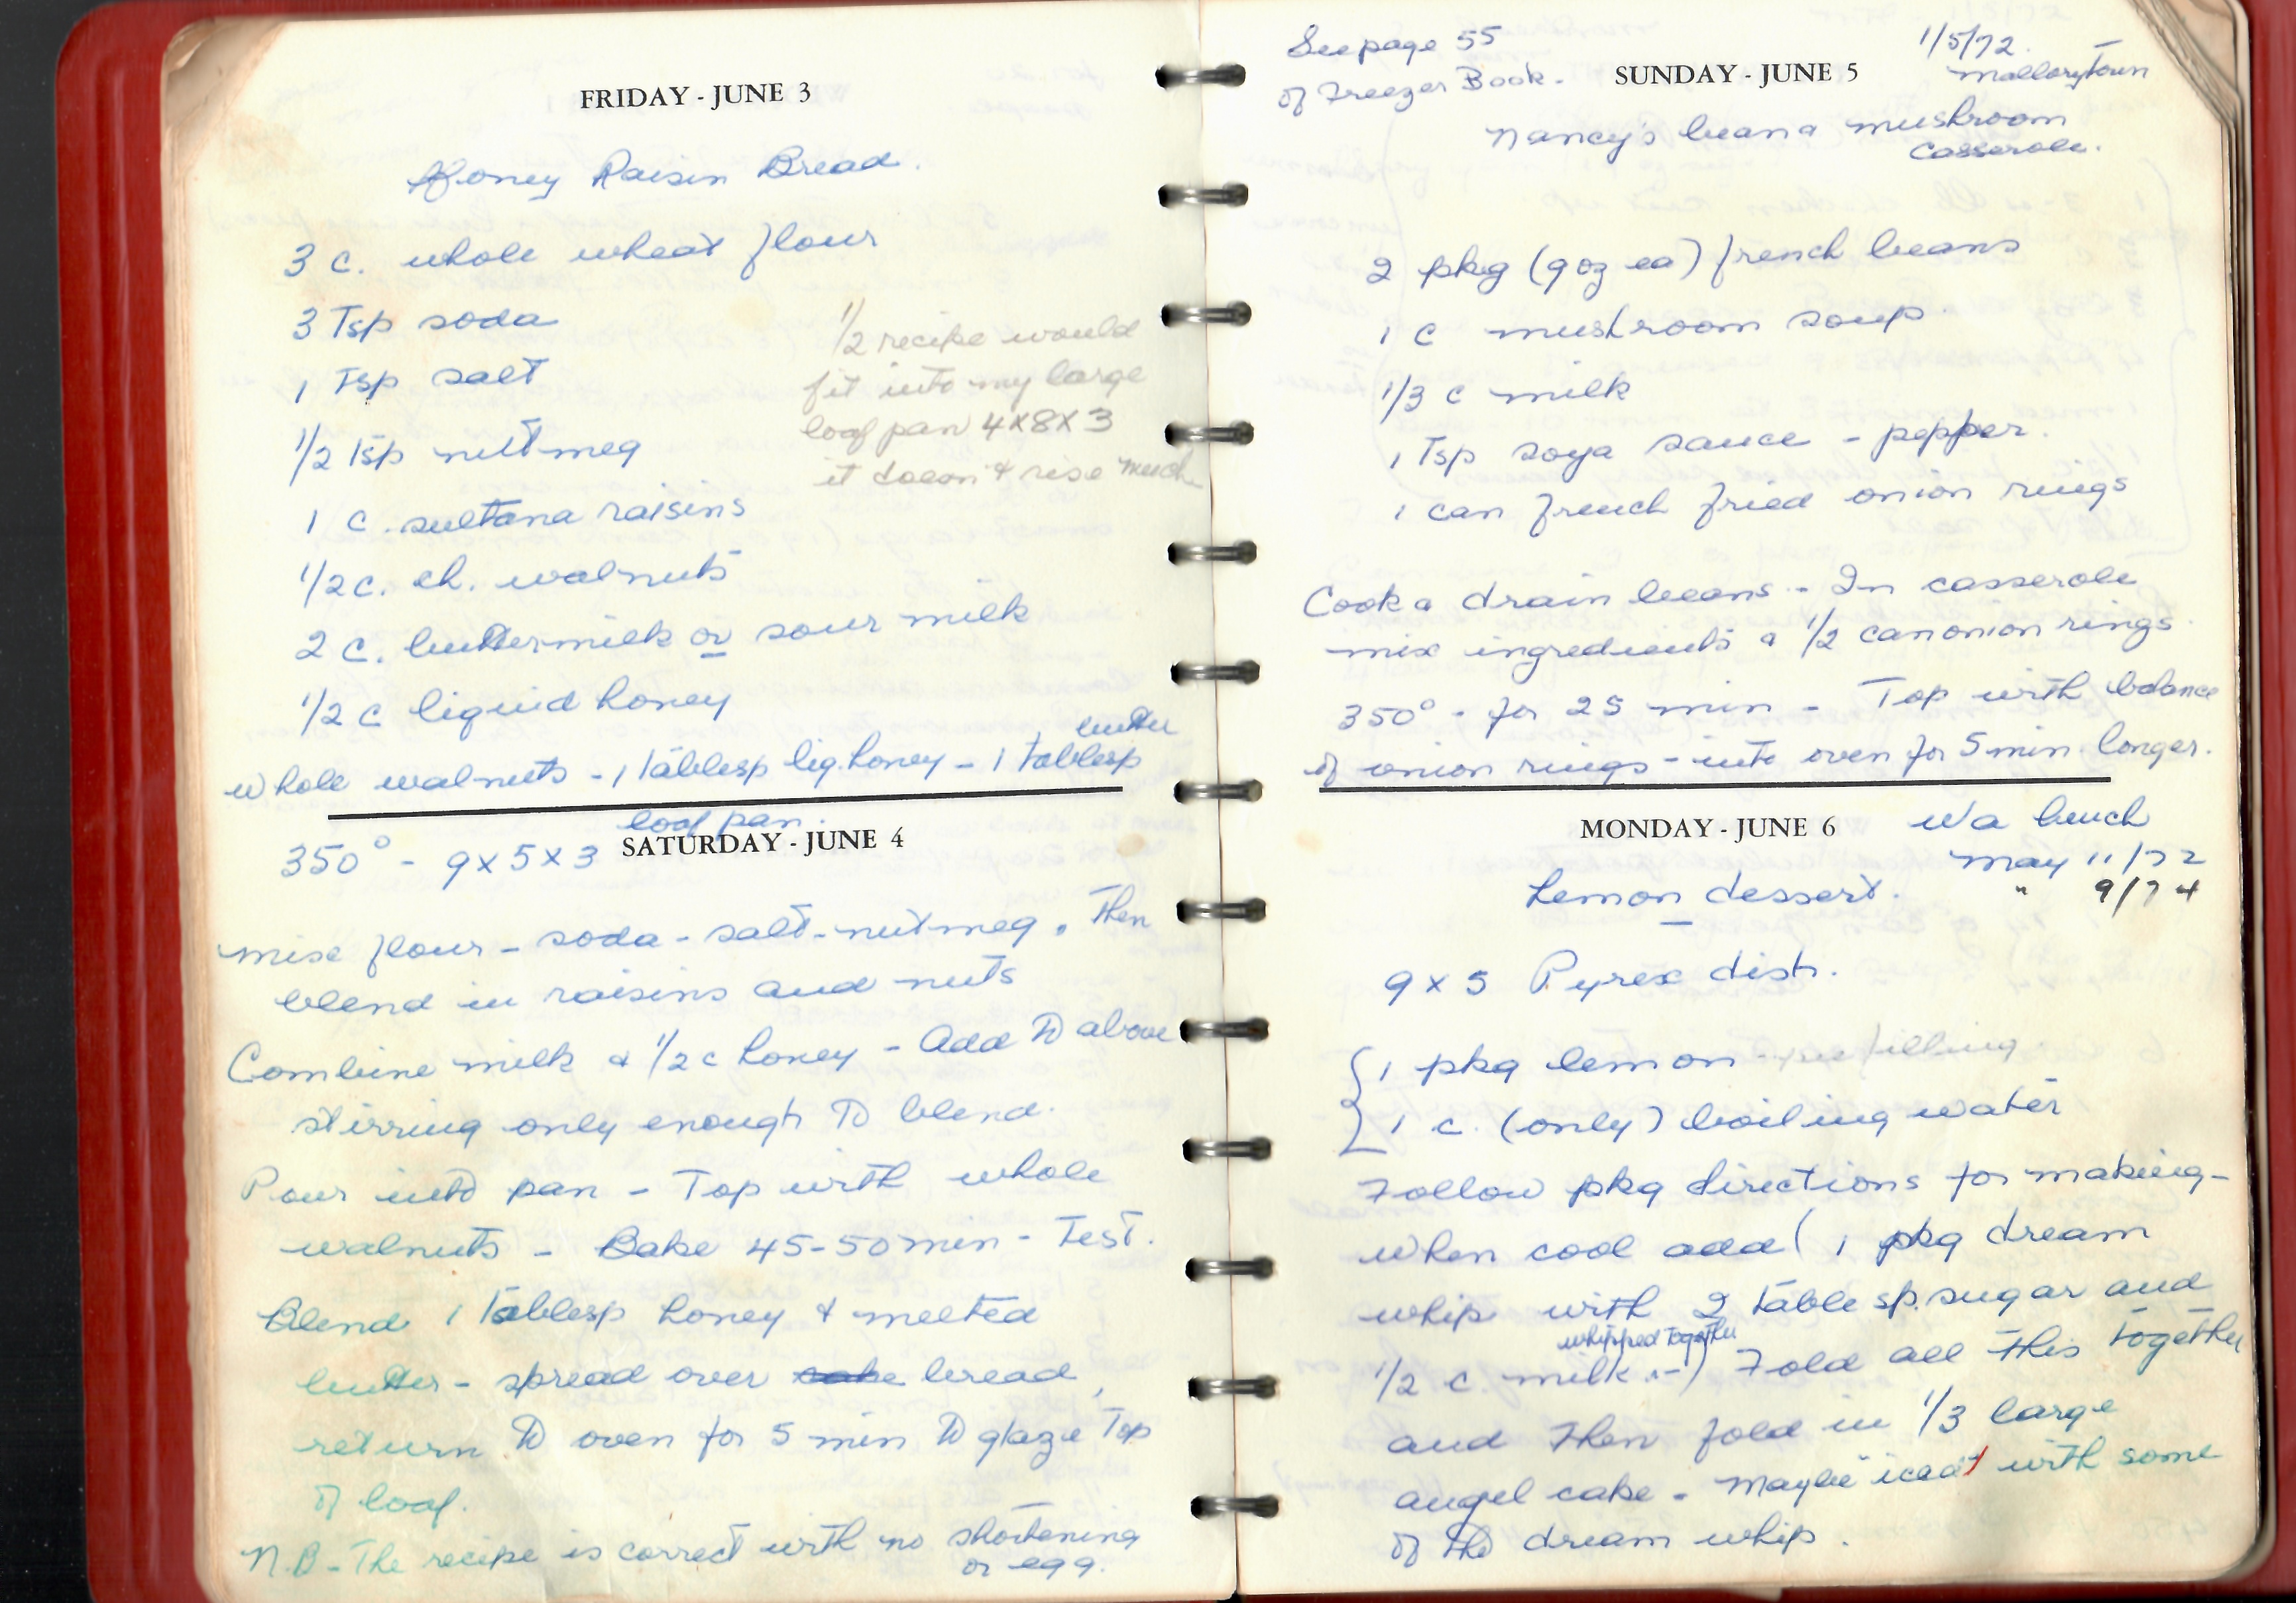 FRIDAY - JUNE 3
Honey Raisin Bread.
3 c. whole wheat flour
3 Tsp soda
1 Tsp salt
1/2 Tsp nutmeg
1 c. sultana raisins
1/2 c. ch. walnuts
2 c. buttermilk or sour milk
1/2 c liquid honey
1/2 recipe would
fit into my large
loaf pan 4x8x3
it doesn't rise much
butter
whole walnuts - 1 tablesp liq. honey - 1 tablesp
loaf pan.
SATURDAY - JUNE 4
350° - 9x5x3
mix flour - soda - salt - nutmeg. Then
blend in raisins and nuts
Combine milk & 1/2 c honey - Add to above
stirring only enough to blend.
Pour into pan - Top with whole
walnuts - Bake 45-50 min - Test.
Blend 1 tablesp honey & melted
butter - spread over cake bread,
return to oven for 5 min to glaze top
of loaf.
N.B - The recipe is correct with no shortening
or egg.
See page 55
of Freezer Book.
SUNDAY - JUNE 5
1/5/72.
Mallorytown
Nancy's bean & mushroom
casserole.
2 pkg (9 oz ea) french beans
1 c mushroom soup.
1/3 c milk
1 Tsp soya sauce - pepper.
1 can french fried onion rings
Cook & drain beans - In casserole
mix ingredients & 1/2 can onion rings.
350° - for 25 min - Top with balance
of onion rings - into oven for 5 min longer.
MONDAY - JUNE 6
Wa lunch
May 11/72
" 9/74
Lemon dessert.
9 x 5 Pyrex dish.
1 pkg lemon - pie filling
1 c. (only) boiling water
Follow pkg directions for making -
when cool add (1 pkg dream
whip with 2 tablesp. sugar and
whipped together
1/2 c. milk -) Fold all this together
and then fold in 1/3 large
angel cake - Maybe iced with some
of the dream whip.